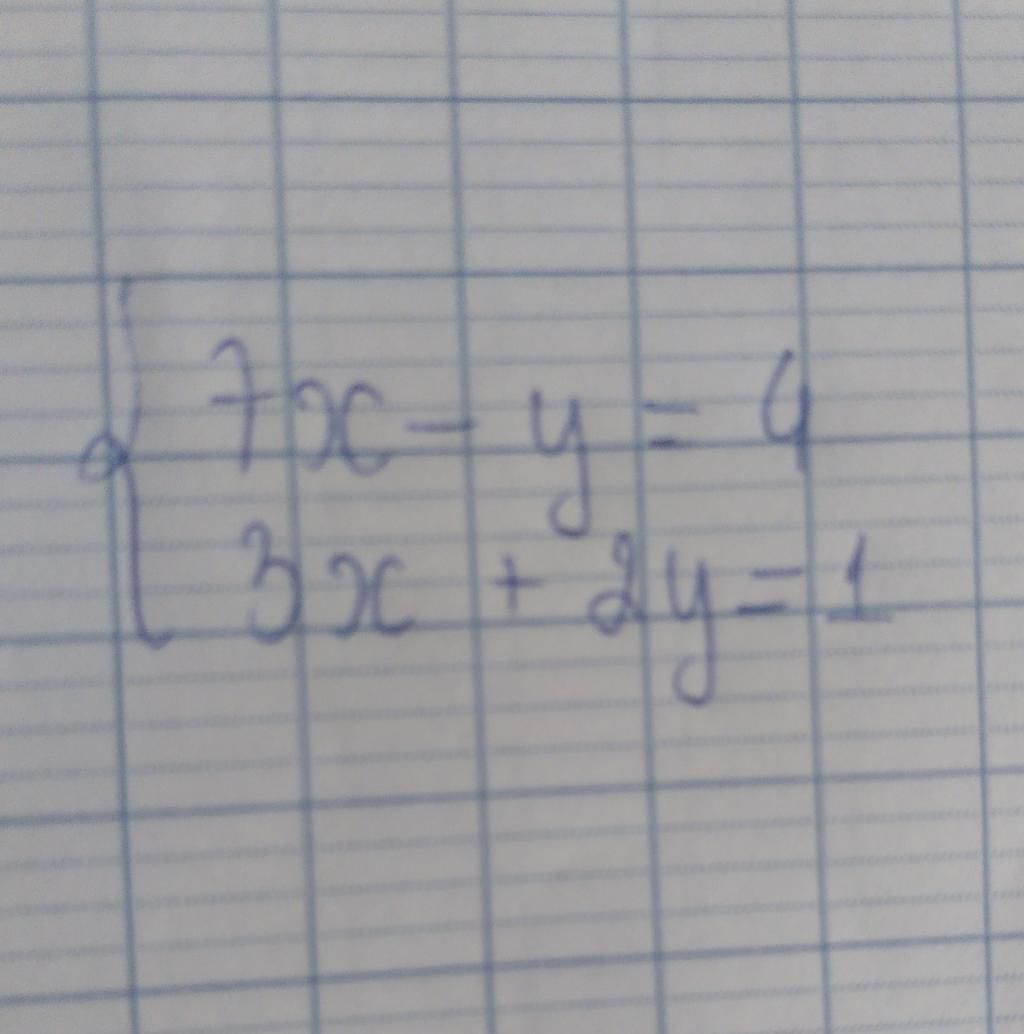 7x - y = 4
3x + 2y = 1